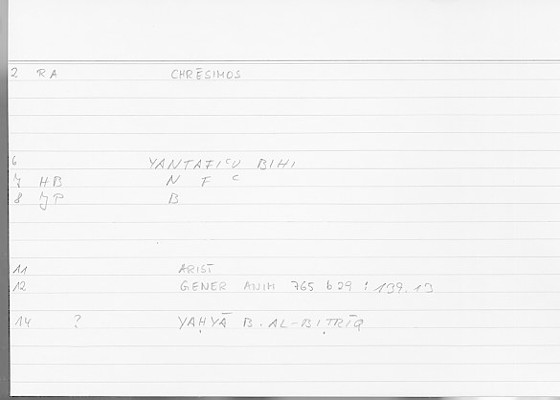 2 RA CHRĒSIMOS
6 YANTAFIʿU BIHI
7 HB N F ʿ
8 JP B
11 ARIST
12 GENER ANIM 765 b 29 : 139.13
14 ? YAḤYĀ B. AL-BIṬRĪQ